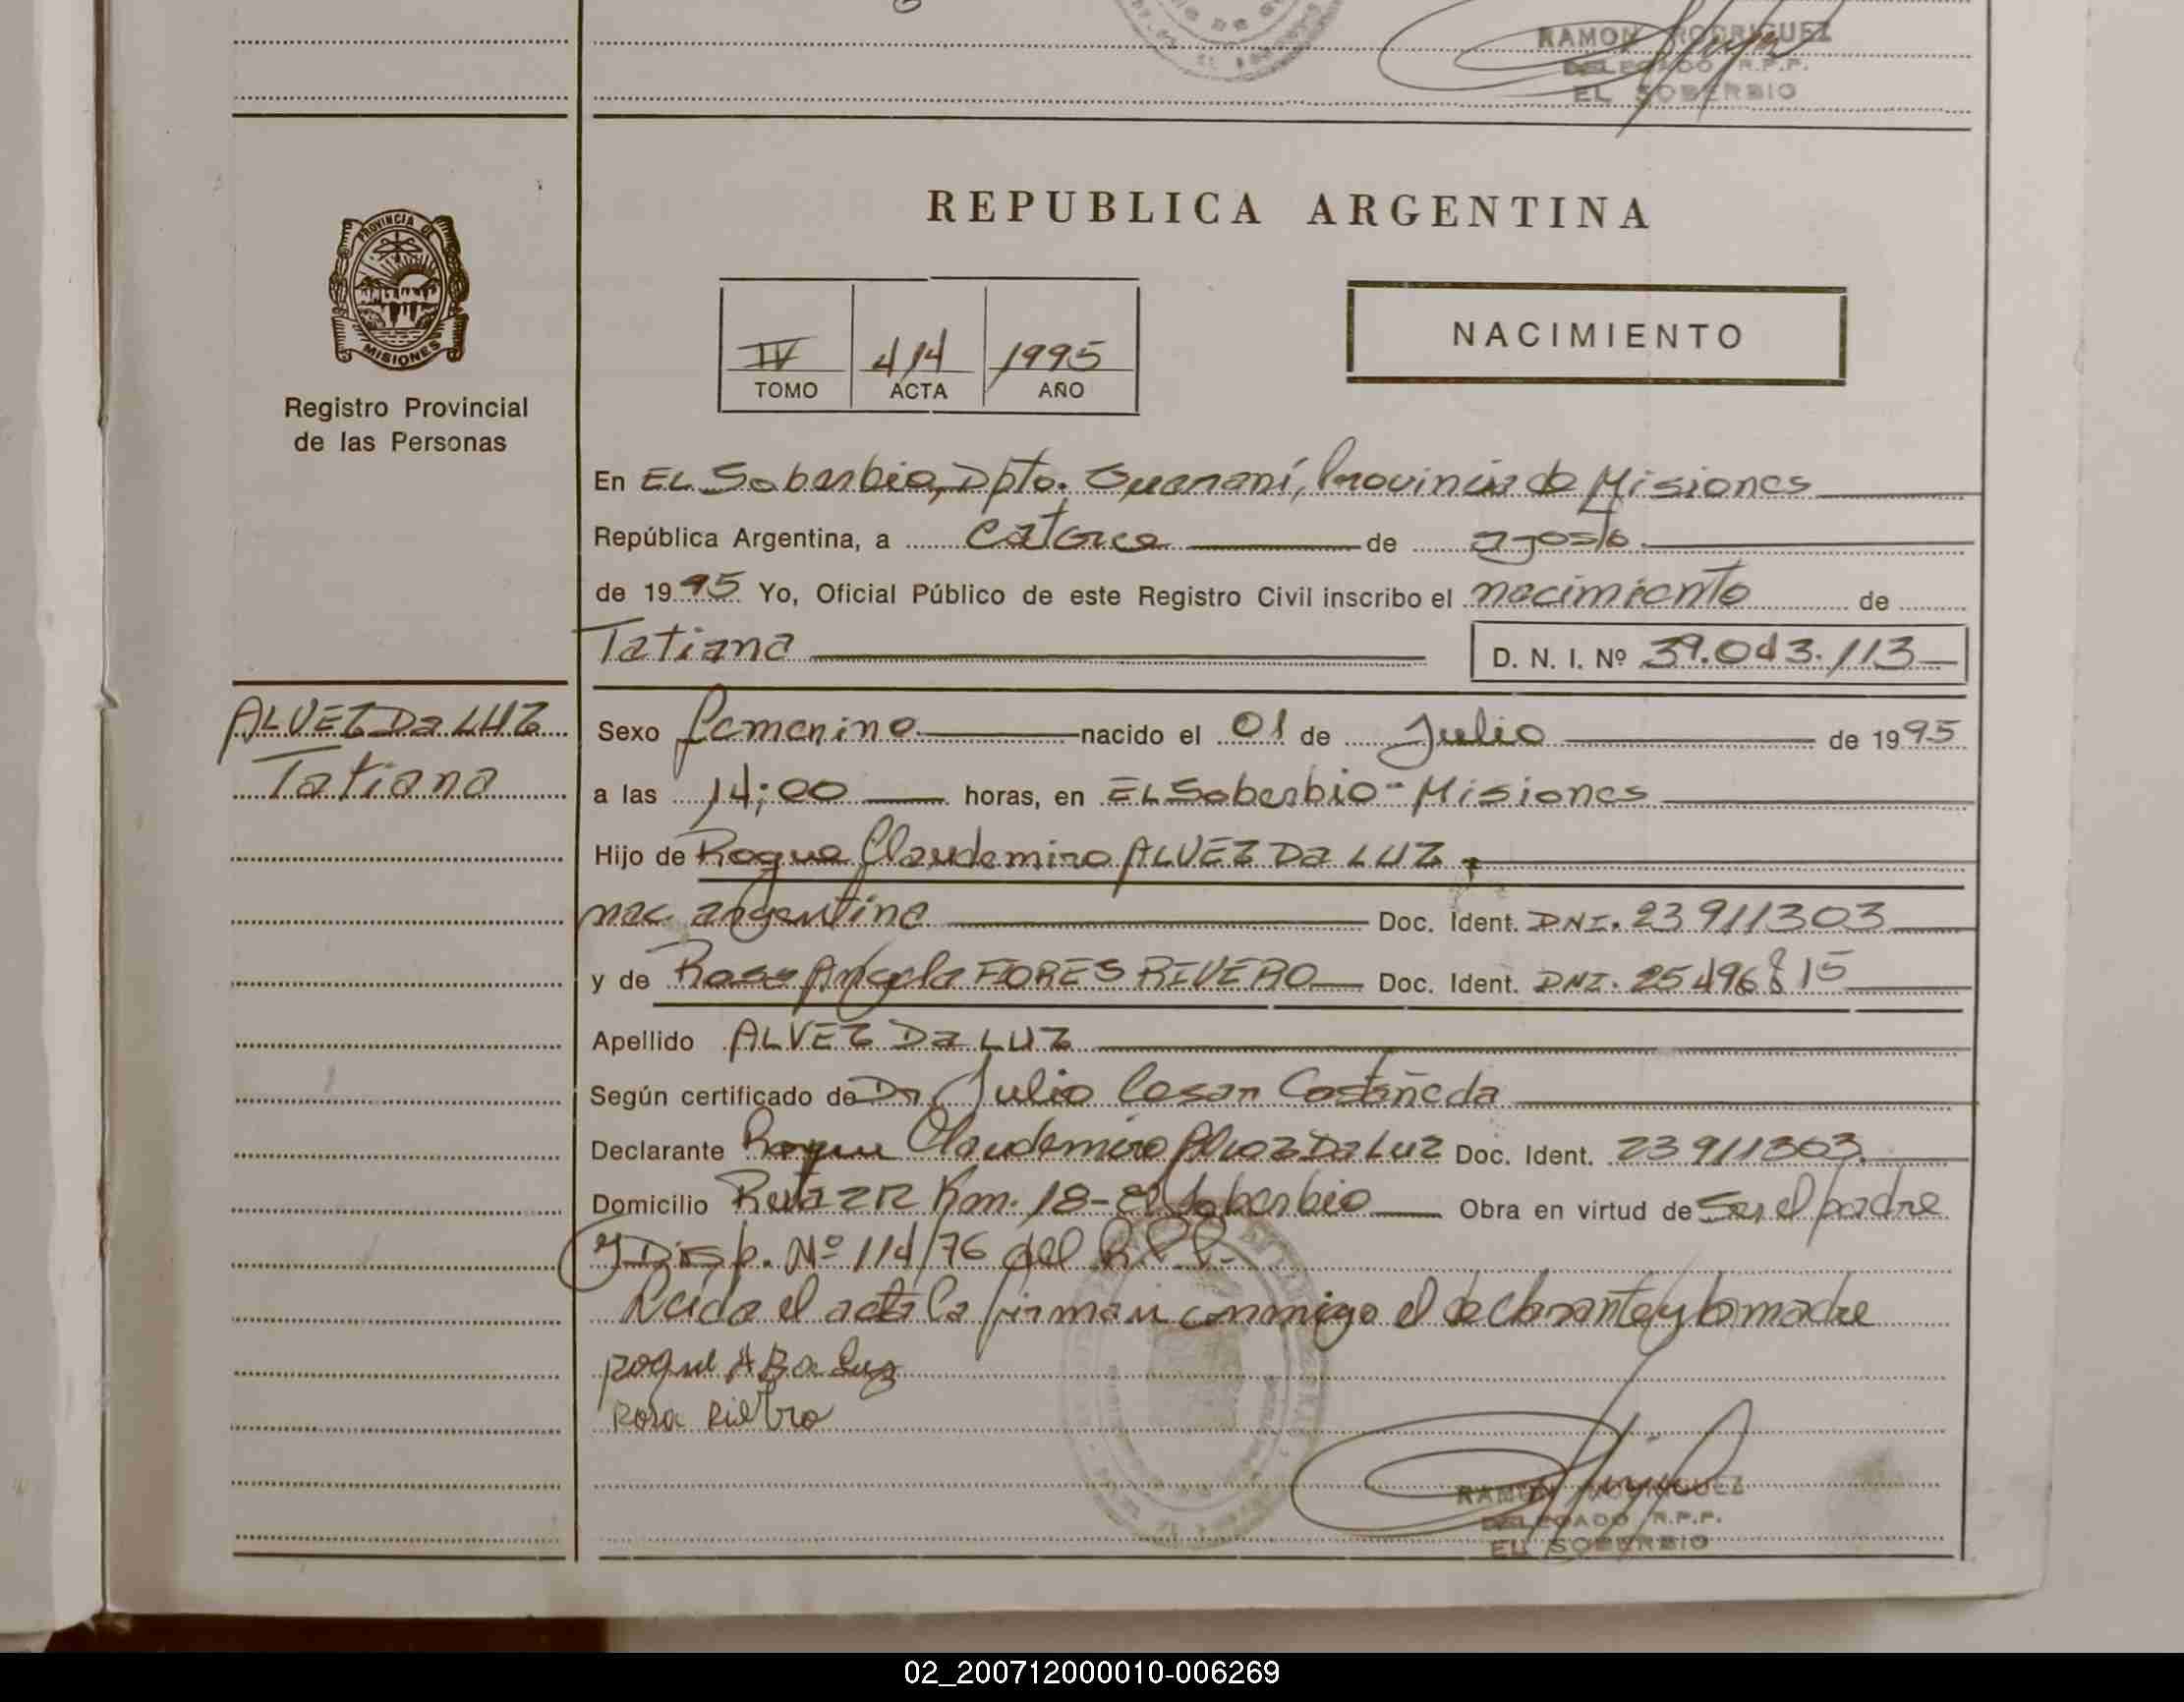 RAMON RODRIGUEZ
DELEGADO R.P.P.
EL SOBERBIO
PROVINCIA DE
MISIONES
Registro Provincial
de las Personas
REPUBLICA ARGENTINA
IV 414 1995
TOMO ACTA AÑO
NACIMIENTO
En EL Soberbio, Dpto. Guaraní, Provincia de Misiones
República Argentina, a catorce de agosto
de 1995 Yo, Oficial Público de este Registro Civil inscribo el nacimiento de
Tatiana D. N. I. Nº 39.043.113
ALVEZ Da LUZ
Tatiana
Sexo femenino nacido el 01 de Julio de 1995
a las 14:00 horas, en EL Soberbio - Misiones
Hijo de Roque Claudemiro ALVEZ Da LUZ
nac. argentina Doc. Ident. DNI. 23911303
y de Rosa Angela FLORES RIVERO Doc. Ident. DNI. 25496815
Apellido ALVEZ Da LUZ
Según certificado de Dr Julio Cesar Castañeda
Declarante Roque Claudemiro Alvez Da Luz Doc. Ident. 23911303.
Domicilio Ruta 2 Km. 18 - El Soberbio Obra en virtud de Ser el padre
y Disp. Nº 114/76 del R.P.P.
Leida el acta la firman conmigo el declarante y la madre
Roque A Da Luz
Rosa Rivero
RAMON RODRIGUEZ
DELEGADO R.P.P.
EL SOBERBIO
02_200712000010-006269